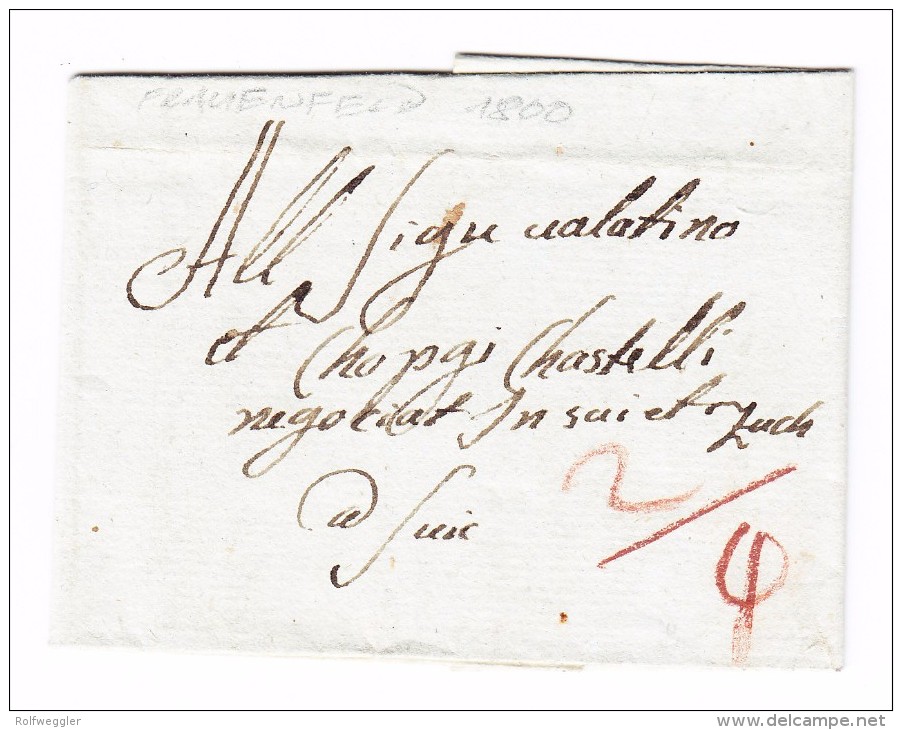 FRAUENFELD 1800
All Sigu ualatino
et Chopgi Chastelli
negotiat In suiet Zuch
a Suic
2/4
Rolfweggler
www.delcampe.net